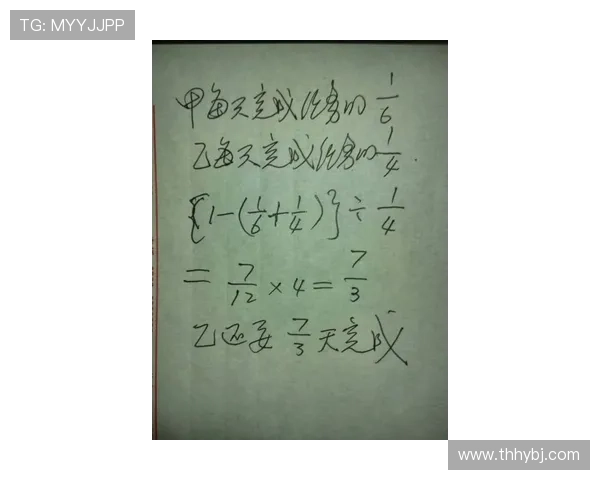 TG: MYYJJPP
甲每天完成任务的 1/6
乙每天完成任务的 1/4
{1-(1/6+1/4)}÷1/4
= 7/12 × 4 = 7/3
乙还要 7/3 天完成
www.thhybj.com